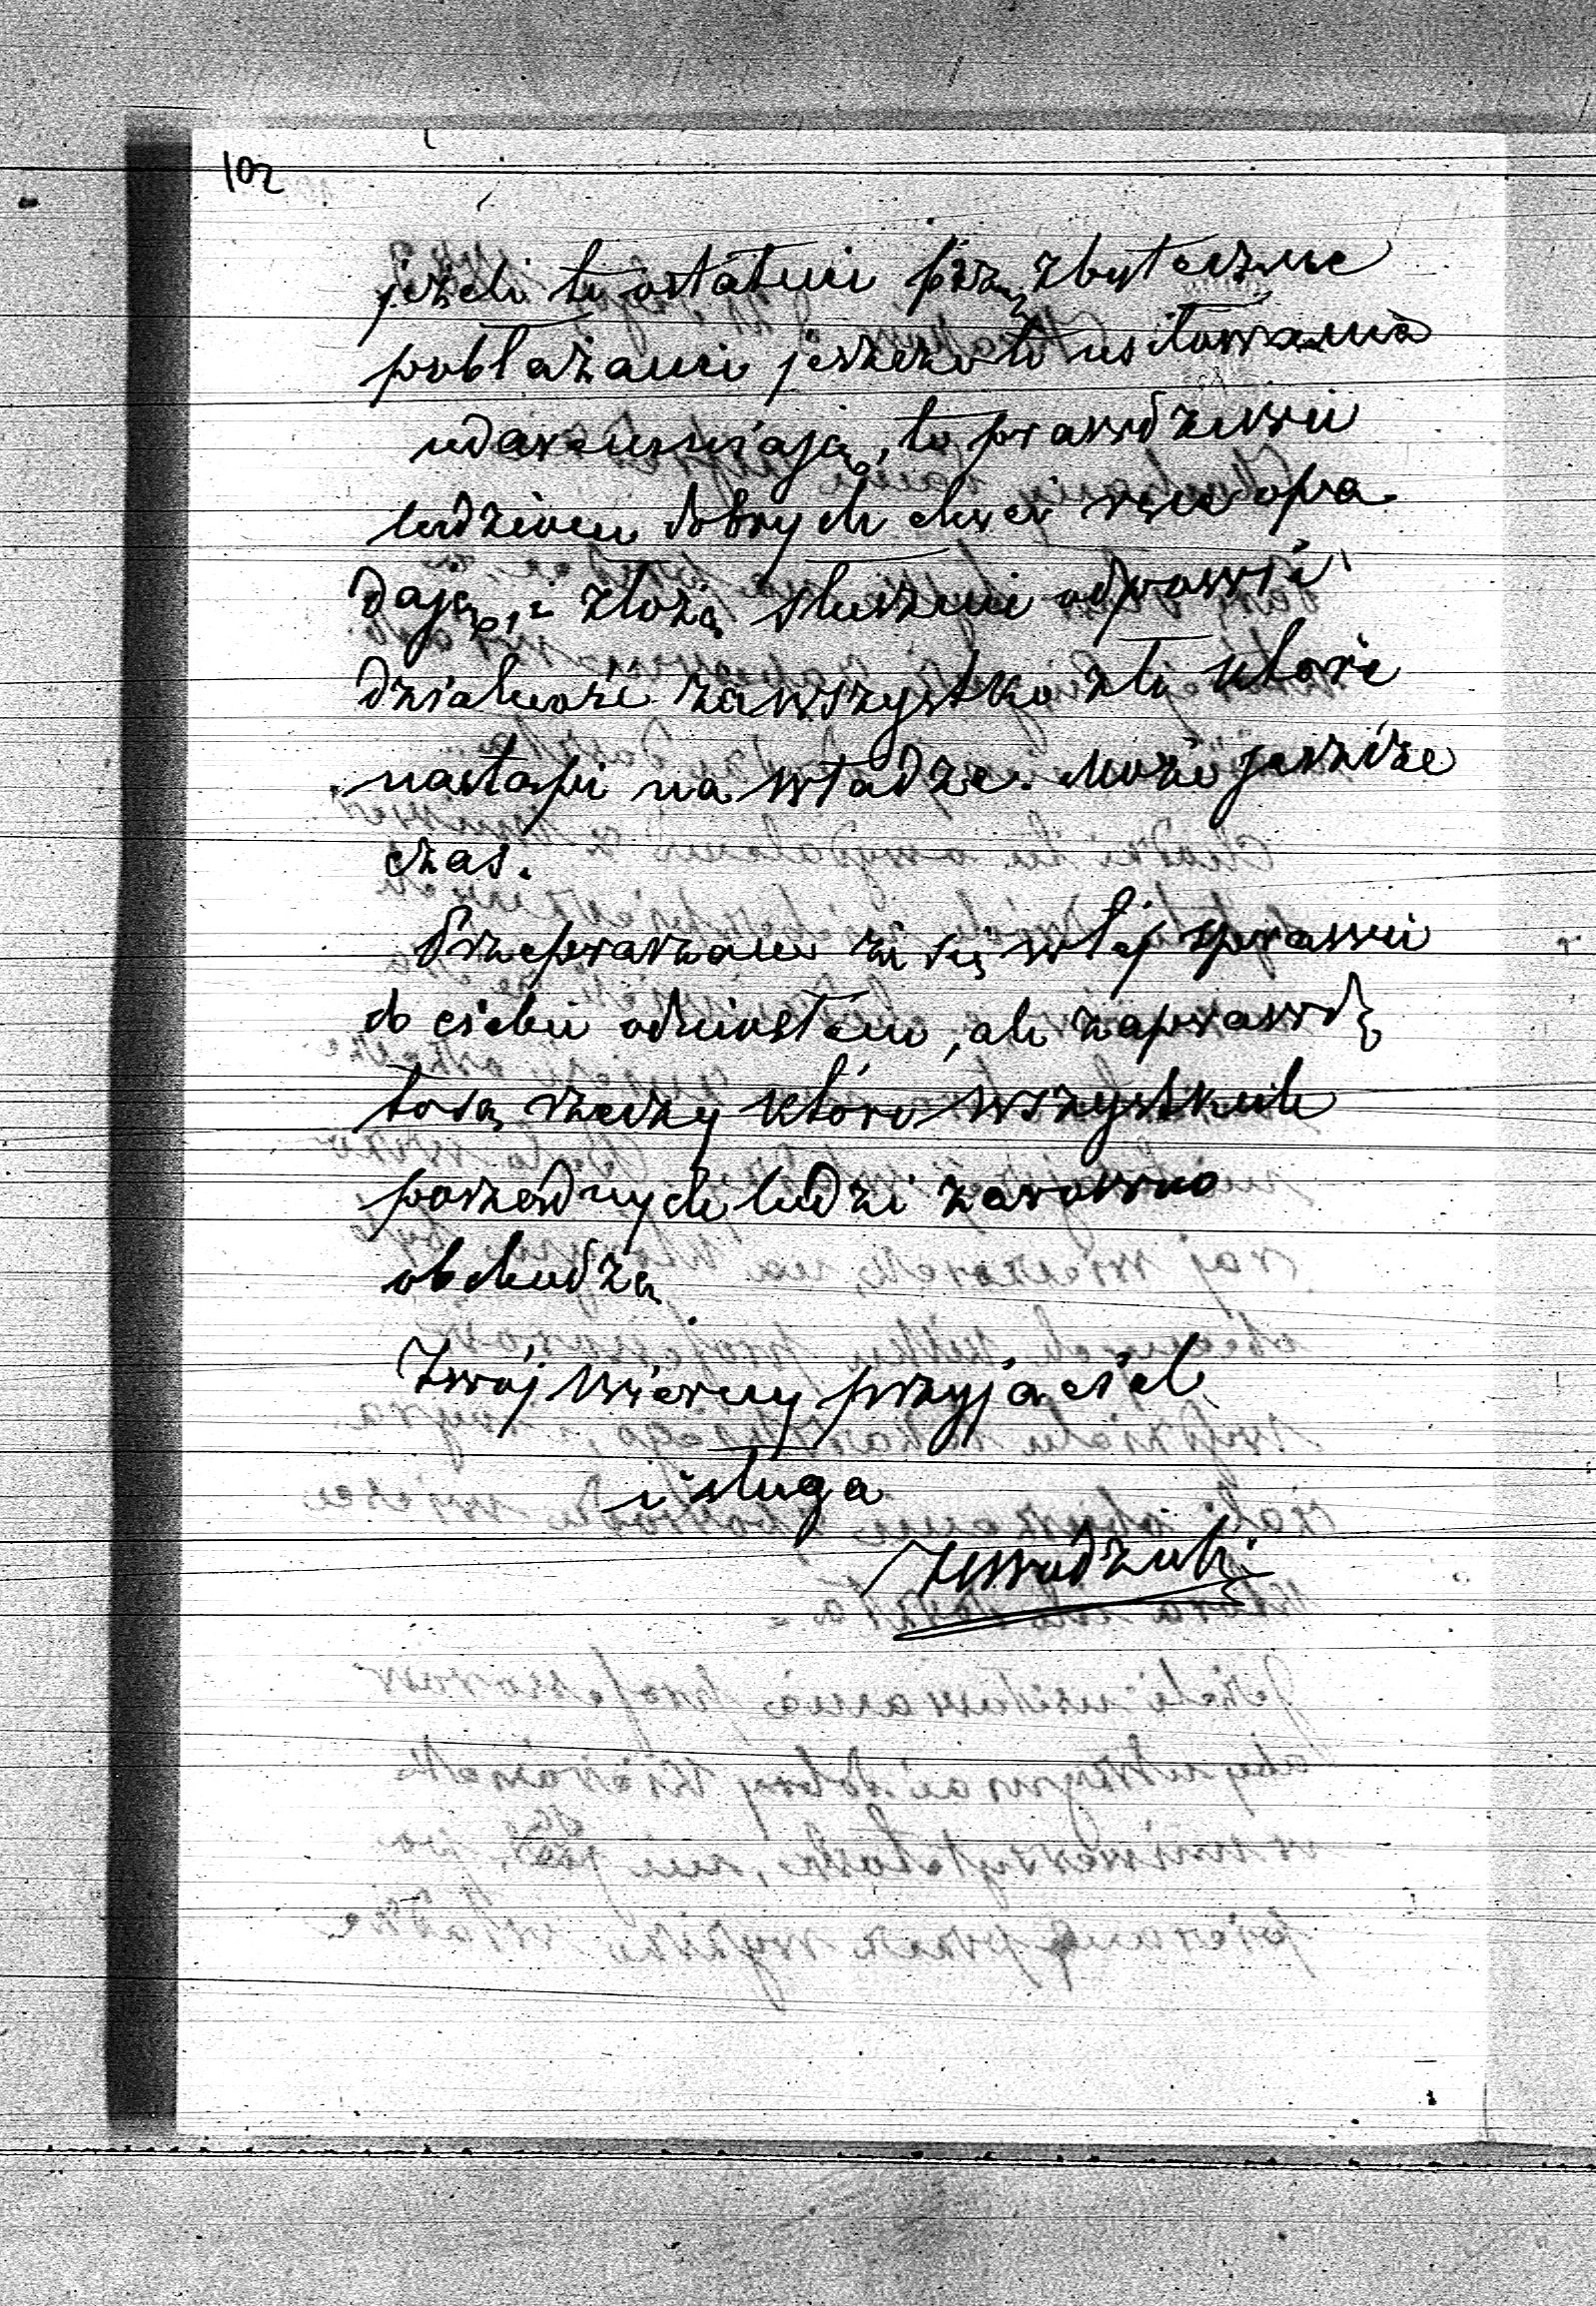 102
jeżeli te ostatnie przez zbyteczne
pobłażanie jeszcze te usiłowania
udaremniają, to prawdziwie
ludziom dobrych chęci ręce opa
dają, i złożą słusznie odpowie
dzialność za wszystko złe które
nastąpi na władze. Może jeszcze
czas.
Przepraszam że się w tej sprawie
do ciebie odniosłem, ale zaprawdę
to są rzeczy które wszystkich
porządnych ludzi zarówno
obchodzą
Twój wierny przyjaciel
i sługa